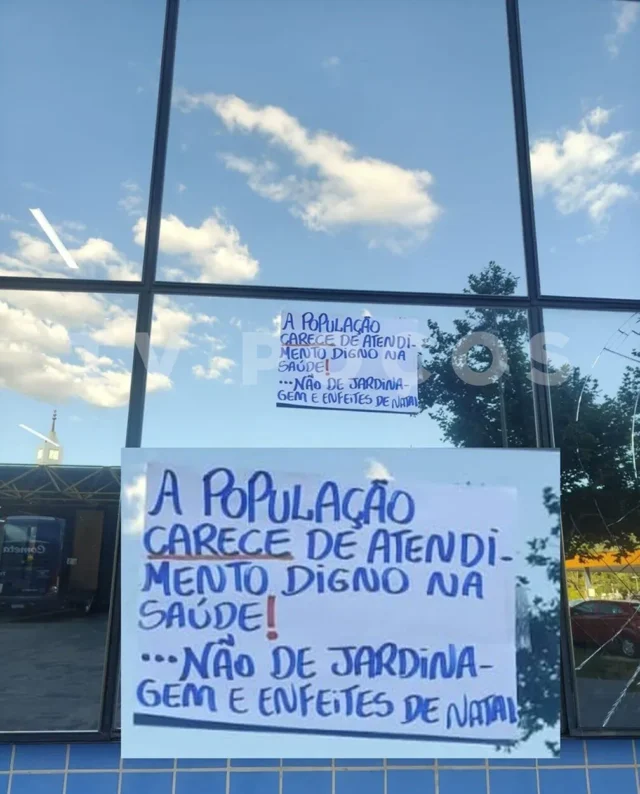 A POPULAÇÃO
CARECE DE ATENDI-
MENTO DIGNO NA
SAÚDE!
...NÃO DE JARDINA-
GEM E ENFEITES DE NATAL
V POCOS
A POPULAÇÃO
CARECE DE ATENDI-
MENTO DIGNO NA
SAÚDE!
...NÃO DE JARDINA-
GEM E ENFEITES DE NATAL
Cometa